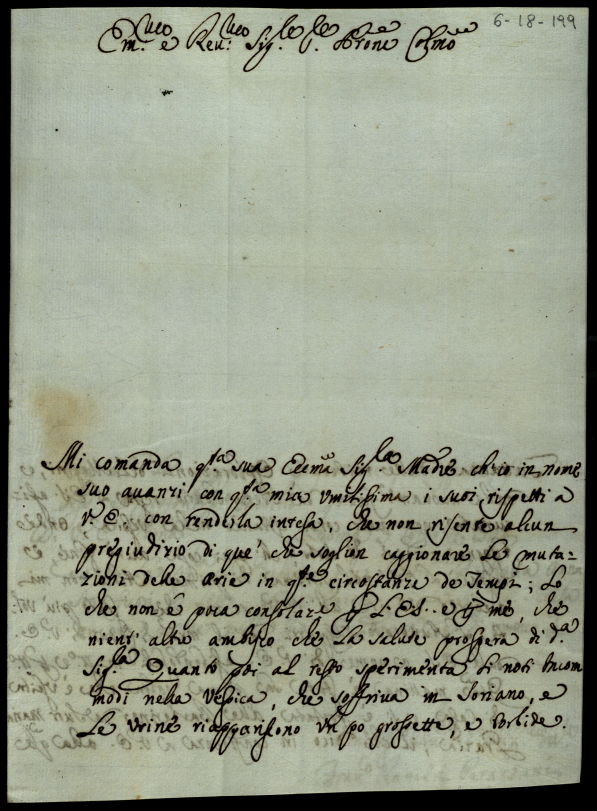 6-18-199
Em.mo e Reu.mo Sig.re Sig.re Prone Colmo
Mi comanda q.ta sua Ecema Sig.ra Madre ch'io in nome
suo auanzi con q.ta mia vmilissima i suoi rispetti a
V.E. con renderla intesa, che non risente alcun
pregiudizio di que' che soglion caggionare le muta=
zioni dele arie in q.te circostanze de Tempi; Lo
che non è poca consolaze p L'E.S. e p me, che
nient' altro ambisco che La salute prospera di d.a
Sig.ra Quanto poi al resto sperimenta li noti Incom
modi nella Vesica, che soffriua in Soriano, e
Le vrine riappariscono vn po grossette, e torbide.